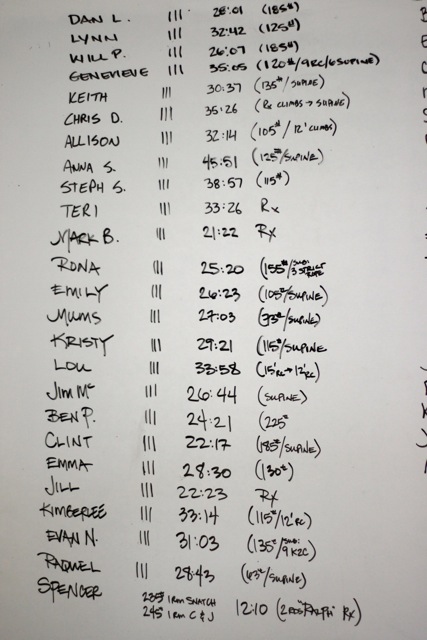 DAN L. ||| 28:01 (185#)
LYNN ||| 32:42 (125#)
WILL P. ||| 26:07 (185#)
GENEVIEVE ||| 35:05 (120#/9RC/6SUPINE)
KEITH ||| 30:37 (135#/SUPINE)
CHRIS D. ||| 35:26 (Rx CLIMBS → SUPINE)
ALLISON ||| 32:14 (105#/12' CLIMBS)
ANNA S. ||| 45:51 (125#/SUPINE)
STEPH S. ||| 38:57 (115#)
TERI ||| 33:26 Rx
MARK B. ||| 21:22 Rx
RONA ||| 25:20 (155#/SUB: 3 STRICT ROPE)
EMILY ||| 26:23 (105#/SUPINE)
MUMS ||| 27:03 (93#/SUPINE)
KRISTY ||| 29:21 (115#/SUPINE
LOU ||| 33:58 (15'RC→12'RC)
JIM Mc ||| 26:44 (SUPINE)
BEN P. ||| 24:21 (225#
CLINT ||| 22:17 (185#/SUPINE)
EMMA ||| 28:30 (130#)
JILL ||| 22:23 Rx
KIMBERLEE ||| 33:14 (115#/12'RC)
EVAN N. ||| 31:03 (135#/SUB: 9 K2C)
RAQUEL ||| 28:43 (63#/SUPINE)
SPENCER 235# 1RM SNATCH
245# 1RM C & J 12:10 ("RALPH" Rx)